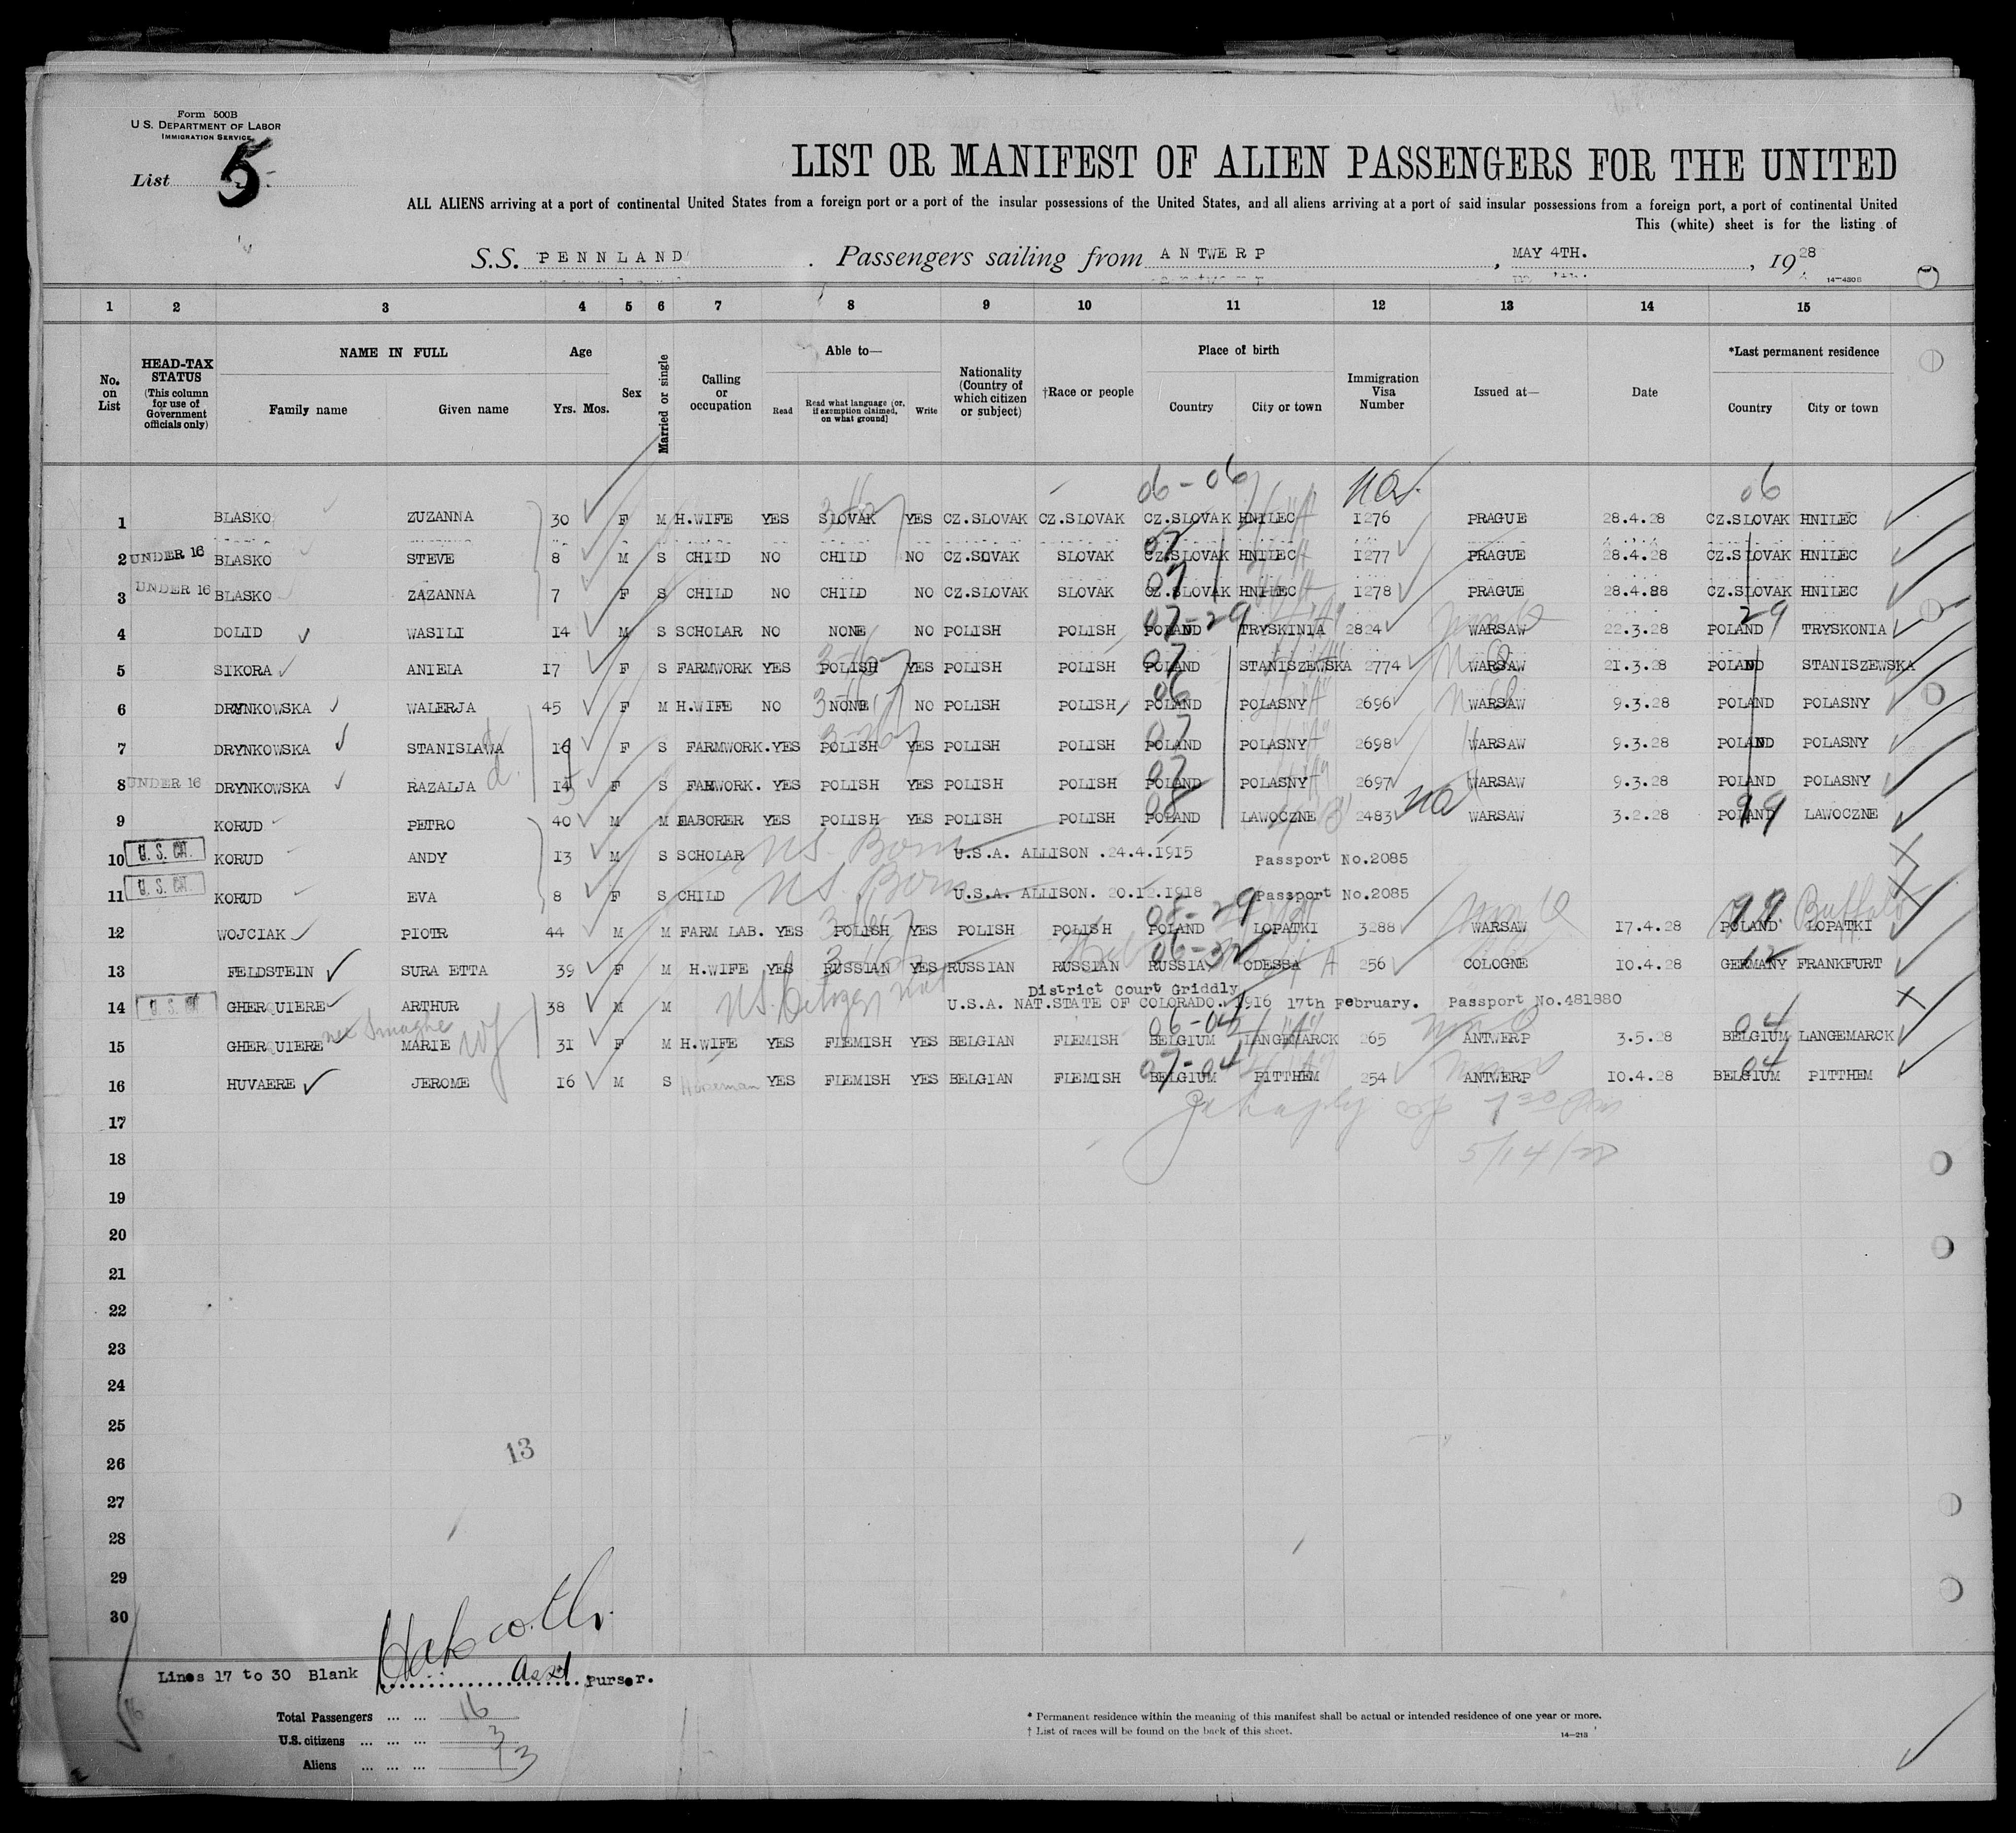 Form 500B
U.S. DEPARTMENT OF LABOR
IMMIGRATION SERVICE
List 5
LIST OR MANIFEST OF ALIEN PASSENGERS FOR THE UNITED
ALL ALIENS arriving at a port of continental United States from a foreign port or a port of the insular possessions of the United States, and all aliens arriving at a port of said insular possessions from a foreign port, a port of continental United
This (white) sheet is for the listing of
S.S. PENNLAND. Passengers sailing from ANTWERP, MAY 4TH., 1928
14—430B
1 2 3 4 5 6 7 8 9 10 11 12 13 14 15
No. on List HEAD-TAX STATUS (This column for use of Government officials only) NAME IN FULL Family name Given name Age Yrs. Mos. Sex Married or single Calling or occupation Able to— Read Read what language (or, if exemption claimed, on what ground) Write Nationality (Country of which citizen or subject) †Race or people Place of birth Country City or town Immigration Visa Number Issued at— Date *Last permanent residence Country City or town
06-06 06
1 BLASKO ZUZANNA 30 F M H.WIFE YES SLOVAK YES CZ.SLOVAK CZ.SLOVAK CZ.SLOVAK HNILEC 1276 PRAGUE 28.4.28 CZ.SLOVAK HNILEC
2 UNDER 16 BLASKO STEVE 8 M S CHILD NO CHILD NO CZ.SLOVAK SLOVAK CZ.SLOVAK HNILEC 1277 PRAGUE 28.4.28 CZ.SLOVAK HNILEC
3 UNDER 16 BLASKO ZAZANNA 7 F S CHILD NO CHILD NO CZ.SLOVAK SLOVAK CZ.SLOVAK HNILEC 1278 PRAGUE 28.4.88 CZ.SLOVAK HNILEC
4 DOLID WASILI 14 M S SCHOLAR NO NONE NO POLISH POLISH POLAND TRYSKINIA 2824 WARSAW 22.3.28 POLAND TRYSKONIA
5 SIKORA ANIELA 17 F S FARMWORK YES POLISH YES POLISH POLISH POLAND STANISZEWSKA 2774 WARSAW 21.3.28 POLAND STANISZEWSKA
6 DRYNKOWSKA WALERJA 45 F M H.WIFE NO NONE NO POLISH POLISH POLAND POLASNY 2696 WARSAW 9.3.28 POLAND POLASNY
7 DRYNKOWSKA STANISLAWA 16 F S FARMWORK. YES POLISH YES POLISH POLISH POLAND POLASNY 2698 WARSAW 9.3.28 POLAND POLASNY
8 UNDER 16 DRYNKOWSKA RAZALJA 14 F S FARWORK. YES POLISH YES POLISH POLISH POLAND POLASNY 2697 WARSAW 9.3.28 POLAND POLASNY
9 KORUD PETRO 40 M M LABORER YES POLISH YES POLISH POLISH POLAND LAWOCZNE 2483 WARSAW 3.2.28 POLAND LAWOCZNE
10 U.S. CIT. KORUD ANDY 13 M S SCHOLAR US. Born U.S.A. ALLISON .24.4.1915 Passport No.2085
11 U.S. CIT. KORUD EVA 8 F S CHILD US. Born U.S.A. ALLISON. 20.12.1918 Passport No.2085
12 WOJCIAK PIOTR 44 M M FARM LAB. YES POLISH YES POLISH POLISH POLAND LOPATKI 3288 WARSAW 17.4.28 POLAND LOPATKI Buffalo
13 FELDSTEIN SURA ETTA 39 F M H.WIFE YES RUSSIAN YES RUSSIAN RUSSIAN RUSSIA ODESSA 256 COLOGNE 10.4.28 GERMANY FRANKFURT
District Court Griddly
14 U.S. CIT GHERQUIERE ARTHUR 38 M M US. Citizen Nat U.S.A. NAT.STATE OF COLORADO. 1916 17th February. Passport No.481880
15 GHERQUIERE MARIE 31 F M H.WIFE YES FLEMISH YES BELGIAN FLEMISH BELGIUM LANGEMARCK 265 ANTWERP 3.5.28 BELGIUM LANGEMARCK
16 HUVAERE JEROME 16 M S Horseman YES FLEMISH YES BELGIAN FLEMISH BELGIUM PITTHEM 254 ANTWERP 10.4.28 BELGIUM PITTHEM
17
18 5/14/28
19
20
21
22
23
24
25
26
13
27
28
29
30
Lines 17 to 30 Blank Asst. Purser.
Total Passengers ... ... 16
U.S. citizens ... ... ... 3
Aliens ... ... ... 13
* Permanent residence within the meaning of this manifest shall be actual or intended residence of one year or more.
† List of races will be found on the back of this sheet.
14—213